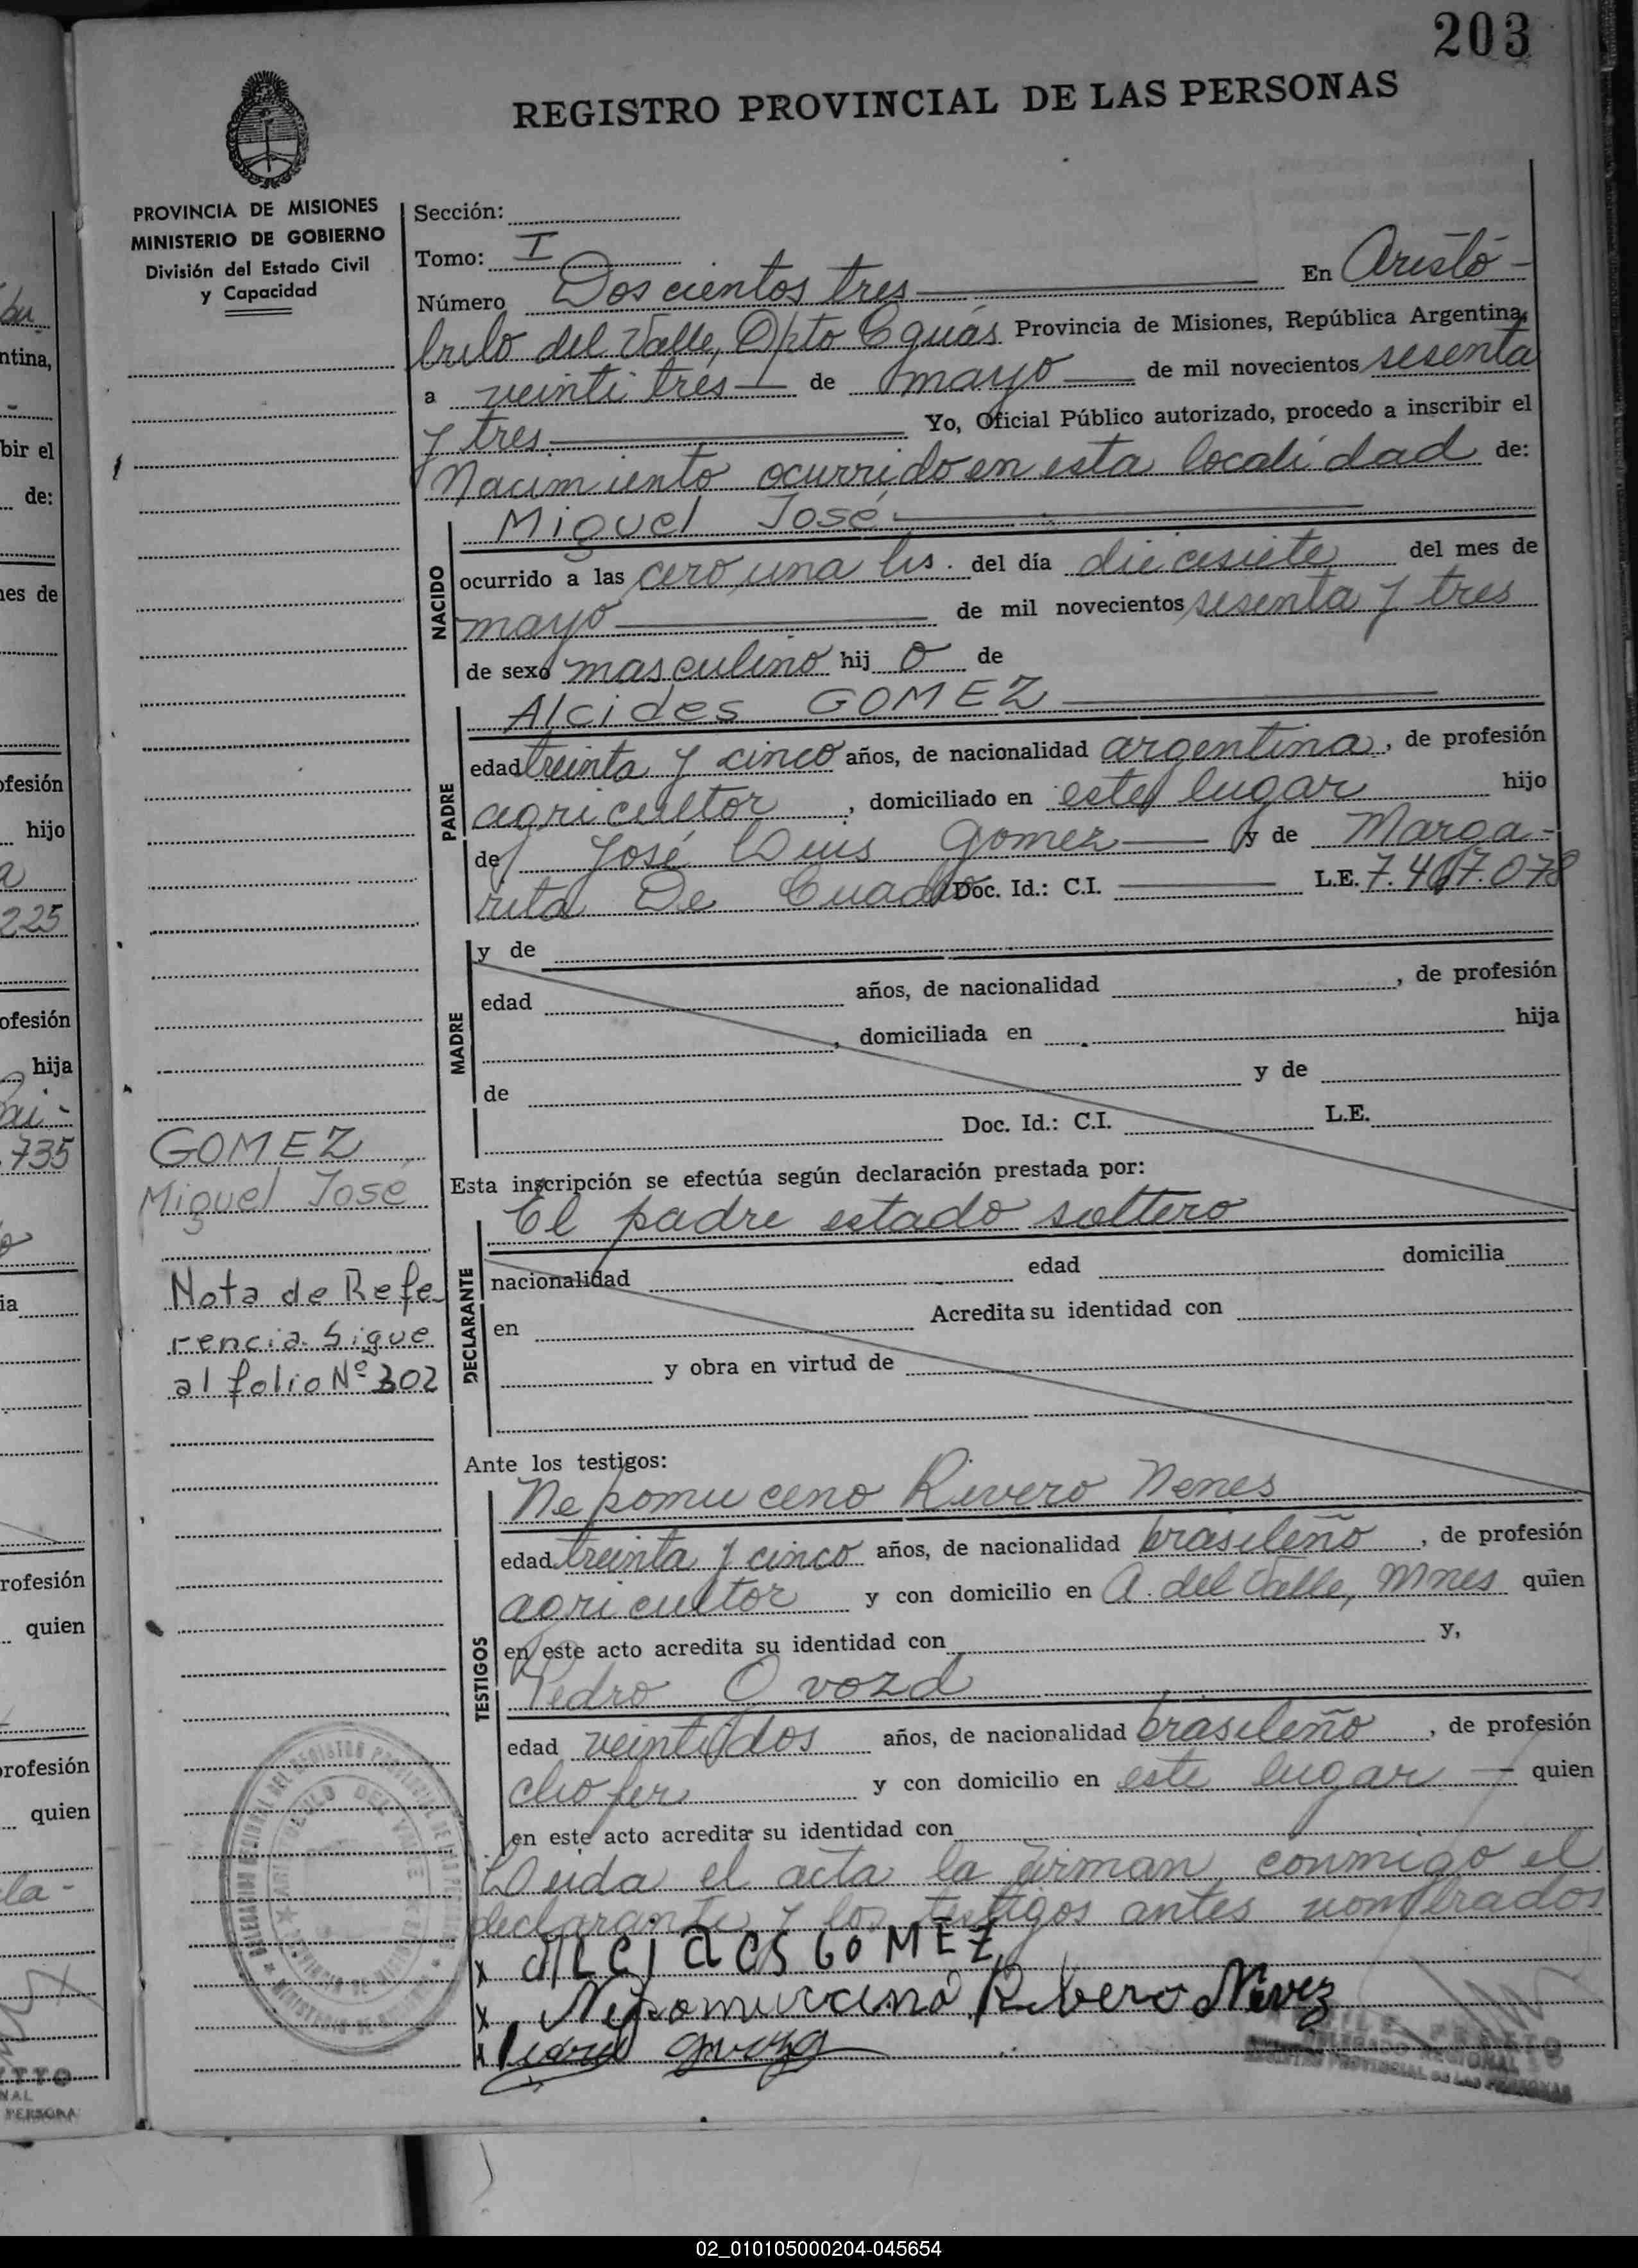 203
REGISTRO PROVINCIAL DE LAS PERSONAS
PROVINCIA DE MISIONES
MINISTERIO DE GOBIERNO
División del Estado Civil
y Capacidad
Sección:
Tomo: I
Número Dos cientos tres En Aristó-
bulo del Valle, Dpto Cguás Provincia de Misiones, República Argentina,
a veinti tres de mayo de mil novecientos sesenta
y tres Yo, Oficial Público autorizado, procedo a inscribir el
Nacimiento ocurrido en esta localidad de:
NACIDO
Miguel José
ocurrido a las cero una hs. del día diecisiete del mes de
mayo de mil novecientos sesenta y tres
de sexo masculino hij o de
PADRE
Alcides GOMEZ
edad treinta y cinco años, de nacionalidad argentina, de profesión
agricultor, domiciliado en este lugar hijo
de José Luis Gomez y de Marga-
rita De Cuadro Doc. Id.: C.I. L.E. 7.467.078
MADRE
y de
edad años, de nacionalidad , de profesión
, domiciliada en hija
de y de
Doc. Id.: C.I. L.E.
GOMEZ
Miguel José
Esta inscripción se efectúa según declaración prestada por:
El padre estado soltero
Nota de Refe-
rencia Sigue
al folio Nº 302
DECLARANTE
nacionalidad edad domicilia
en Acredita su identidad con
y obra en virtud de
Ante los testigos:
TESTIGOS
Nepomuceno Rivero Nenes
edad treinta y cinco años, de nacionalidad brasileño, de profesión
agricultor y con domicilio en A. del Valle, Mnes quien
en este acto acredita su identidad con y,
Pedro Ovozd
edad veintidos años, de nacionalidad brasileño, de profesión
chofer y con domicilio en este lugar quien
en este acto acredita su identidad con
Leida el acta la firman conmigo el
declarante y los testigos antes nombrados
x ALCIDES GOMEZ
x Nepomuceno Ribero Nevez
x
DELEGADO REGIONAL
REGISTRO PROVINCIAL DE LAS PERSONAS
02_010105000204-045654